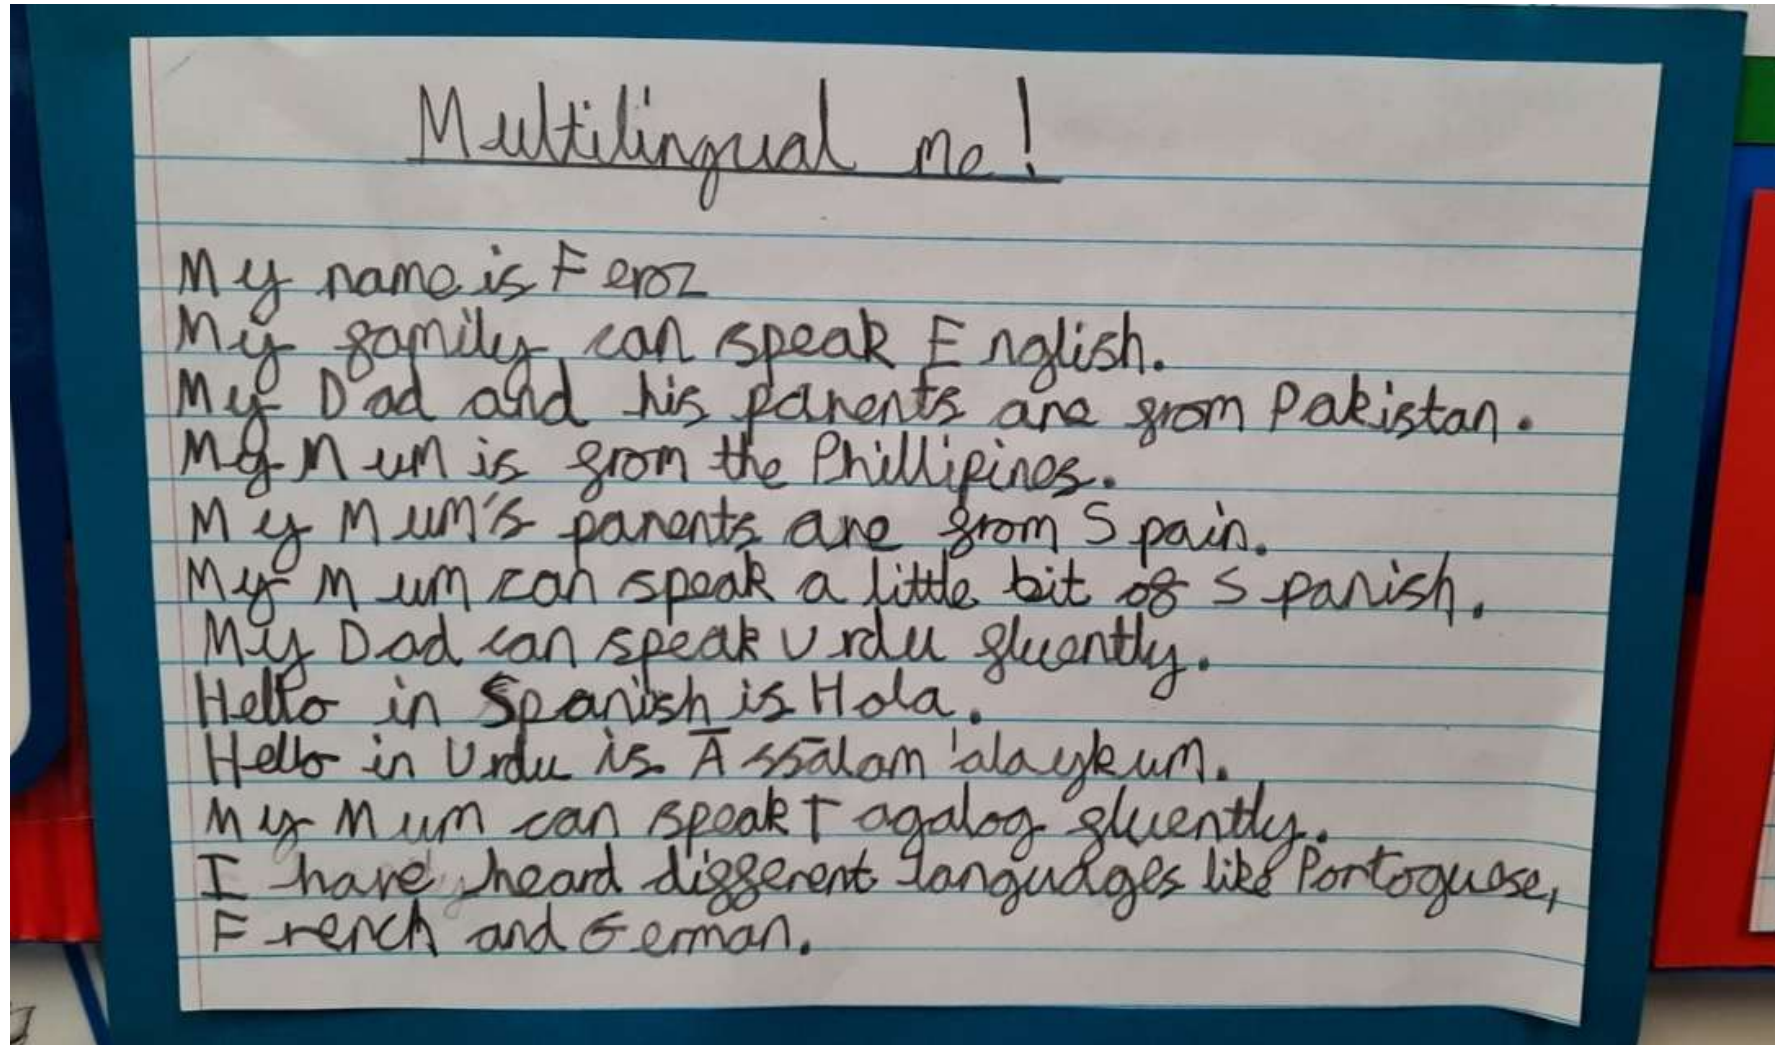 Multilingual me!
My name is Feroz
My family can speak English.
My Dad and his parents are from Pakistan.
My Mum is from the Phillipines.
My Mum's parents are from Spain.
My Mum can speak a little bit of Spanish.
My Dad can speak Urdu fluently.
Hello in Spanish is Hola.
Hello in Urdu is Āssālam 'alaykum.
My Mum can speak Tagalog fluently.
I have heard different languages like Portoguese,
French and German.